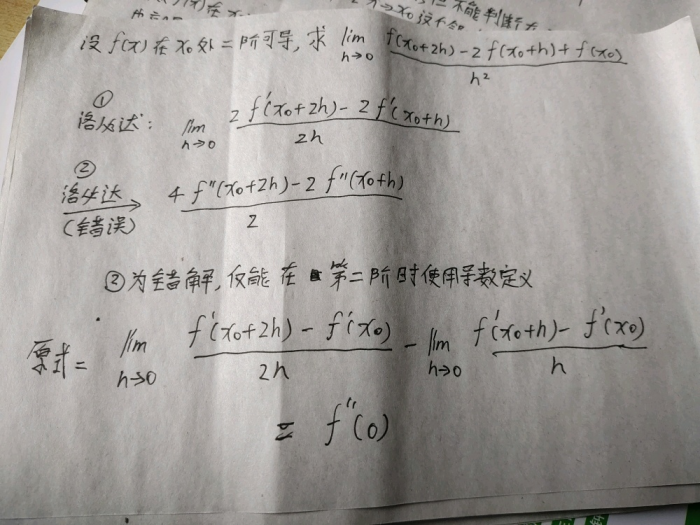 不能判断
x→x₀ 没
设 f(x) 在 x₀ 处二阶可导, 求 lim h→0 (f(x₀+2h) - 2f(x₀+h) + f(x₀)) / h²
①
洛必达: lim h→0 (2f'(x₀+2h) - 2f'(x₀+h)) / 2h
②
洛必达 (错误) → (4f''(x₀+2h) - 2f''(x₀+h)) / 2
②为错解, 仅能在第二阶时使用导数定义
原式 = lim h→0 (f'(x₀+2h) - f'(x₀)) / 2h - lim h→0 (f'(x₀+h) - f'(x₀)) / h
= f''(0)